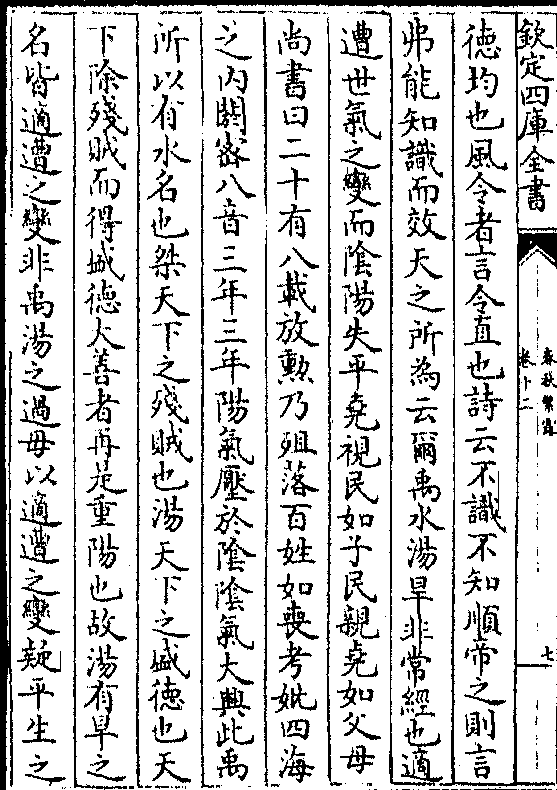 欽定四庫全書
春秋繁露
卷十二
七
徳均也風令者言令直也詩云不識不知順帝之則言
弗能知識而效天之所為云爾禹水湯旱非常經也適
遭世氣之變而隂陽失平堯視民如子民親堯如父母
尚書曰二十有八載放勲乃殂落百姓如喪考妣四海
之内閼密八音三年三年陽氣壓於隂隂氣大興此禹
所以有水名也桀天下之殘賊也湯天下之盛徳也天
下除殘賊而得盛徳大善者再是重陽也故湯有旱之
名皆適遭之變非禹湯之過毋以適遭之變疑平生之